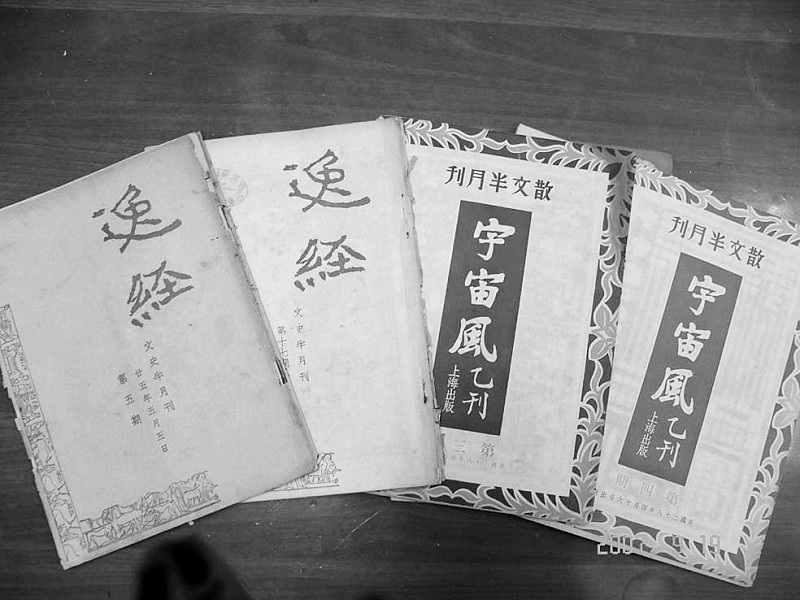 逸
経
文史半月刊
廿五年五月五日
第五期
逸
経
文史半月刊
第十七期
散文半月刊
宇宙風
乙刊
上海出版
第三
散文半月刊
宇宙風
乙刊
上海出版
第四期
民國二十八年四月十六日出